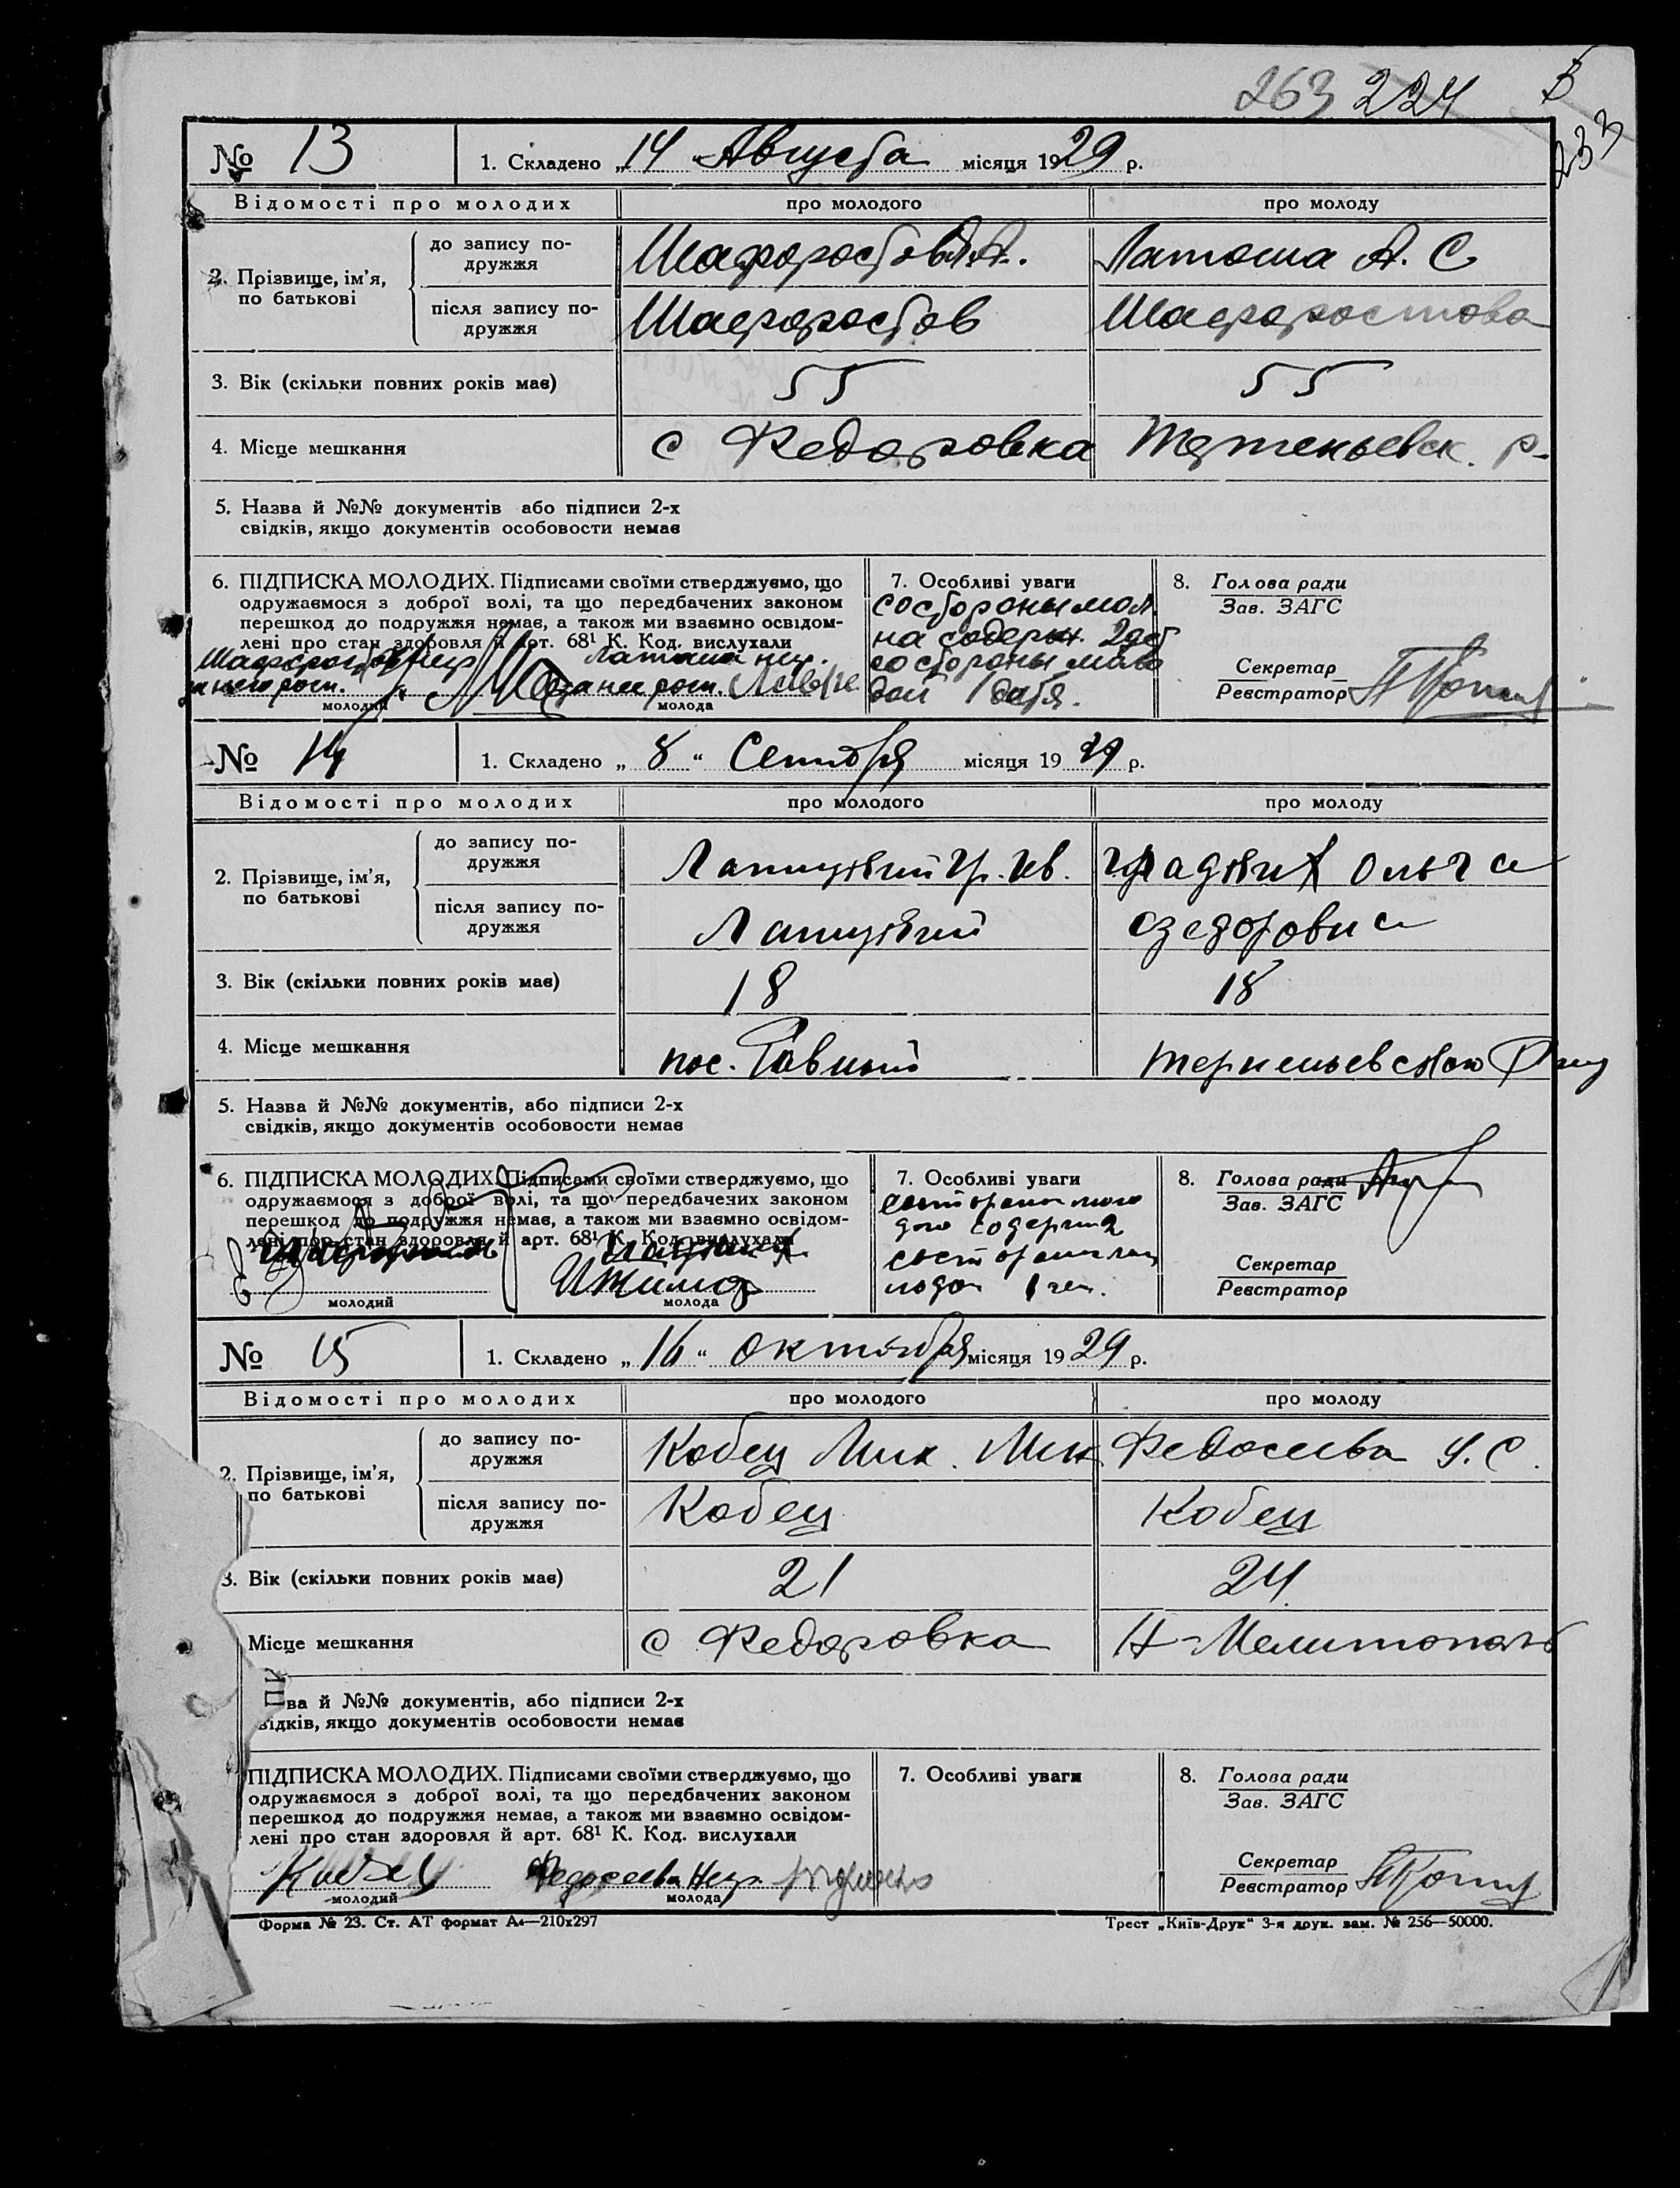 263 224
5
233
№ 13 1. Складено „14" Августа місяця 1929 р.
Відомості про молодих про молодого про молоду
2. Прізвище, ім'я, по батькові
до запису подружжя Шафоростов А.А. Латоша А. С
після запису подружжя Шафоростов Шафоростова
3. Вік (скільки повних років має) 55 55
4. Місце мешкання с Федоровка Терпеньевск. р-
5. Назва й №№ документів або підписи 2-х
свідків, якщо документів особовости немає
6. ПІДПИСКА МОЛОДИХ. Підписами своїми стверджуємо, що
одружаємося з доброї волі, та що передбачених законом
перешкод до подружжя немає, а також ми взаємно освідом-
лені про стан здоровля й арт. 68¹ К. Код. вислухали
Шафоростов негр. Латоша негр.
за него росп. за нее росп.
молодий молода
7. Особливі уваги
со стороны мол.
на содерж. 2 дет
со стороны моло
дой 1 дитя.
8. Голова ради
Зав. ЗАГС
Секретар
Реєстратор
№ 14 1. Складено „8" Сентября місяця 1929 р.
Відомості про молодих про молодого про молоду
2. Прізвище, ім'я, по батькові
до запису подружжя Гр. Ив. Ольга
після запису подружжя Федоровна
3. Вік (скільки повних років має) 18 18
4. Місце мешкання пос. Равный
5. Назва й №№ документів, або підписи 2-х
свідків, якщо документів особовости немає
6. ПІДПИСКА МОЛОДИХ. Підписами своїми стверджуємо, що
одружаємося з доброї волі, та що передбачених законом
перешкод до подружжя немає, а також ми взаємно освідом-
лені про стан здоровля й арт. 68¹ К. Код. вислухали
молодий молода
7. Особливі уваги
8. Голова ради
Зав. ЗАГС
Секретар
Реєстратор
№ 15 1. Складено „16" октября місяця 1929 р.
Відомості про молодих про молодого про молоду
2. Прізвище, ім'я, по батькові
до запису подружжя Кобец Мих. Мих Федосеева У. С.
після запису подружжя Кобец Кобец
3. Вік (скільки повних років має) 21 24
Місце мешкання с Федоровка Н-Мелитополь
ва й №№ документів, або підписи 2-х
відків, якщо документів особовости немає
ПІДПИСКА МОЛОДИХ. Підписами своїми стверджуємо, що
одружаємося з доброї волі, та що передбачених законом
перешкод до подружжя немає, а також ми взаємно освідом-
лені про стан здоровля й арт. 68¹ К. Код. вислухали
Кобец Федосеева Негр.
молодий молода
7. Особливі уваги
8. Голова ради
Зав. ЗАГС
Секретар
Реєстратор
Форма № 23. Ст. АТ формат А₄—210х297 Трест „Київ-Друк" 3-я друк. зам. № 256—50000.